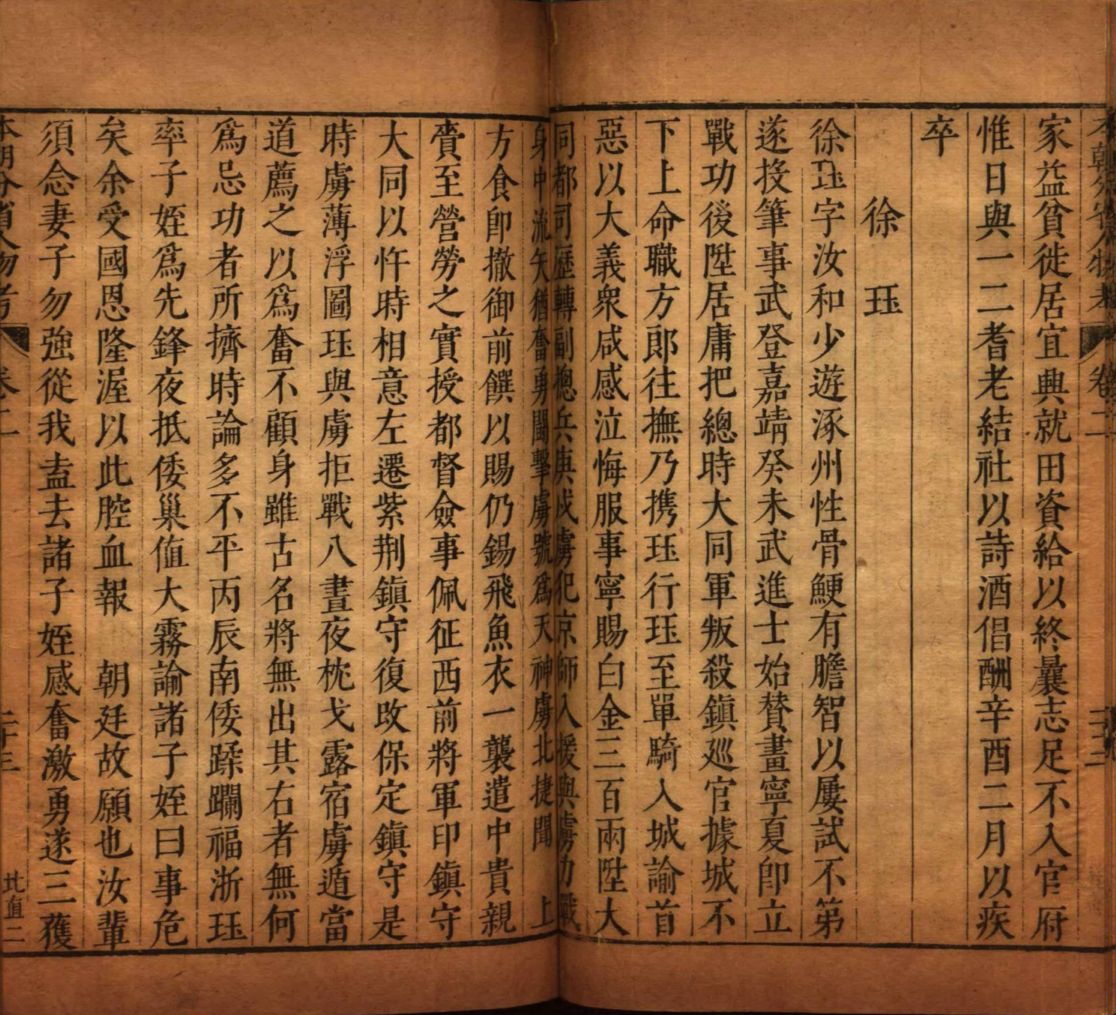 本朝分省人物考 卷二
家益貧徙居宜興就田資給以終曩志足不入官府
惟日與一二耆老結社以詩酒倡酬辛酉二月以疾
卒
徐珏
徐珏字汝和少遊涿州性骨鯁有膽智以屢試不第
遂投筆事武登嘉靖癸未武進士始賛畫寧夏卽立
戰功後陞居庸把總時大同軍叛殺鎮廵官據城不
下上命職方郎往撫乃携珏行珏至單騎入城諭首
惡以大義衆咸感泣悔服事寧賜白金三百兩陞大
同都司歷轉副總兵真戍虜犯京師入援與虜力戰
身中流矢猶奮勇闘擊虜號爲天神虜北捷聞 上
方食卽撤御前饌以賜仍錫飛魚衣一襲遣中貴親
賫至營勞之實授都督僉事佩征西前將軍印鎮守
大同以忤時相意左遷紫荆鎮守復改保定鎮守是
時虜薄浮圖珏與虜拒戰八晝夜枕戈露宿虜遁當
道薦之以爲奮不顧身雖古名將無出其右者無何
爲忌功者所擠時論多不平丙辰南倭蹂躪福浙珏
率子姪爲先鋒夜抵倭巢値大霧諭諸子姪曰事危
矣余受國恩隆渥以此腔血報 朝廷故願也汝輩
須念妻子勿強從我盍去諸子姪感奮激勇遂三獲
本朝分省人物考 卷二 二十三 北直二